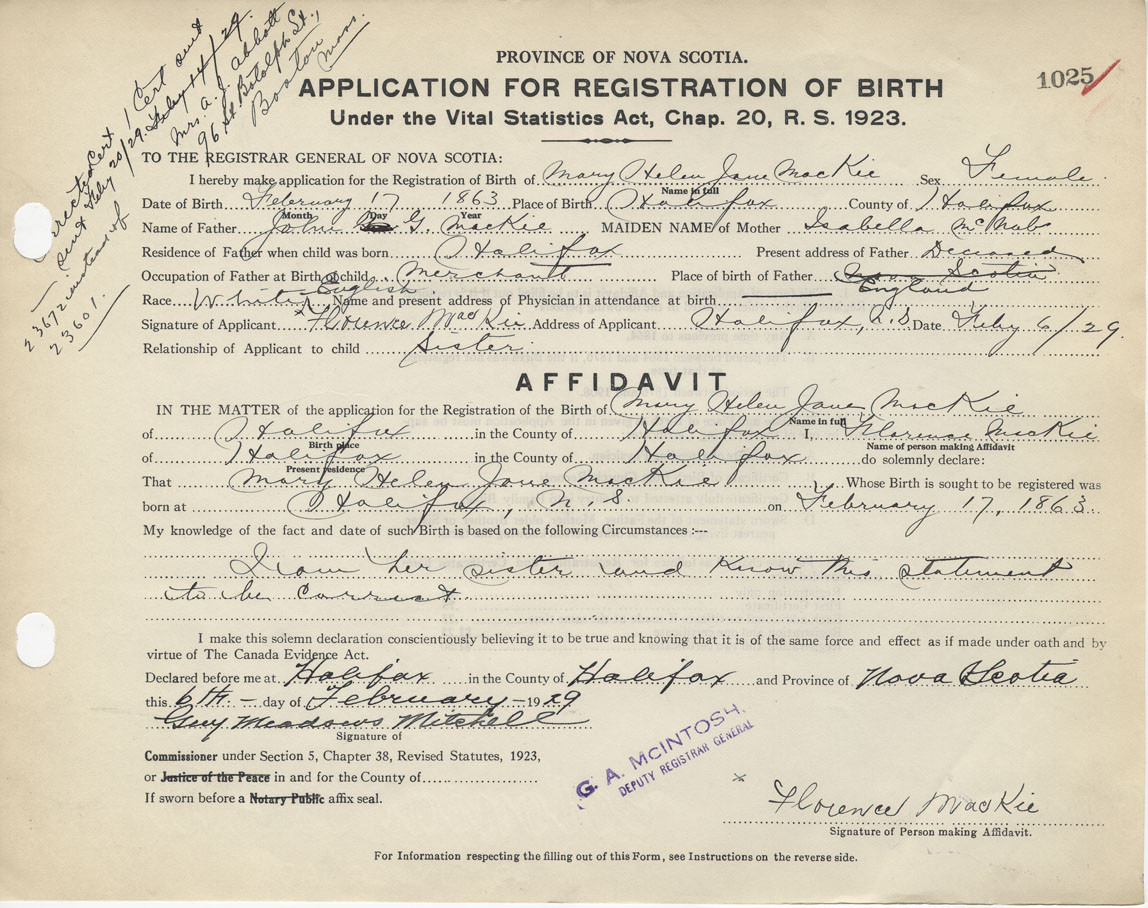 Cert sent
Feby 14/29.
Mrs. A. J. Abbott
96 St Botolph St.,
Boston Mass.
Cert.
sent Feby 20/29.
23672 instead of
23601.
PROVINCE OF NOVA SCOTIA.
1025
APPLICATION FOR REGISTRATION OF BIRTH
Under the Vital Statistics Act, Chap. 20, R. S. 1923.
TO THE REGISTRAR GENERAL OF NOVA SCOTIA:
I hereby make application for the Registration of Birth of Mary Helen Jane MacKie Sex Female
Name in full
Date of Birth February 17 1863 Place of Birth Halifax County of Halifax
Month Day Year
Name of Father John G. MacKie MAIDEN NAME of Mother Isabella McNab
Residence of Father when child was born Halifax Present address of Father Deceased
Occupation of Father at Birth of child Merchant Place of birth of Father Nova Scotia England
Race White English Name and present address of Physician in attendance at birth
Signature of Applicant x Florence MacKie Address of Applicant Halifax, N.S Date Feby 6/29.
Relationship of Applicant to child Sister.
AFFIDAVIT
IN THE MATTER of the application for the Registration of the Birth of Mary Helen Jane MacKie
Name in full
of Halifax in the County of Halifax I, Florence MacKie
Birth place Name of person making Affidavit
of Halifax in the County of Halifax do solemnly declare:
Present residence
That Mary Helen Jane MacKie Whose Birth is sought to be registered was
born at Halifax, N.S. on February 17, 1863
My knowledge of the fact and date of such Birth is based on the following Circumstances :---
I am her sister and know this statement
to be correct.
I make this solemn declaration conscientiously believing it to be true and knowing that it is of the same force and effect as if made under oath and by
virtue of The Canada Evidence Act.
Declared before me at Halifax in the County of Halifax and Province of Nova Scotia
this 6th - day of February - 1929
Guy Meadows Mitchell
Signature of
Commissioner under Section 5, Chapter 38, Revised Statutes, 1923,
or Justice of the Peace in and for the County of
If sworn before a Notary Public affix seal.
G. A. MCINTOSH,
DEPUTY REGISTRAR GENERAL
x Florence MacKie
Signature of Person making Affidavit.
For Information respecting the filling out of this Form, see Instructions on the reverse side.